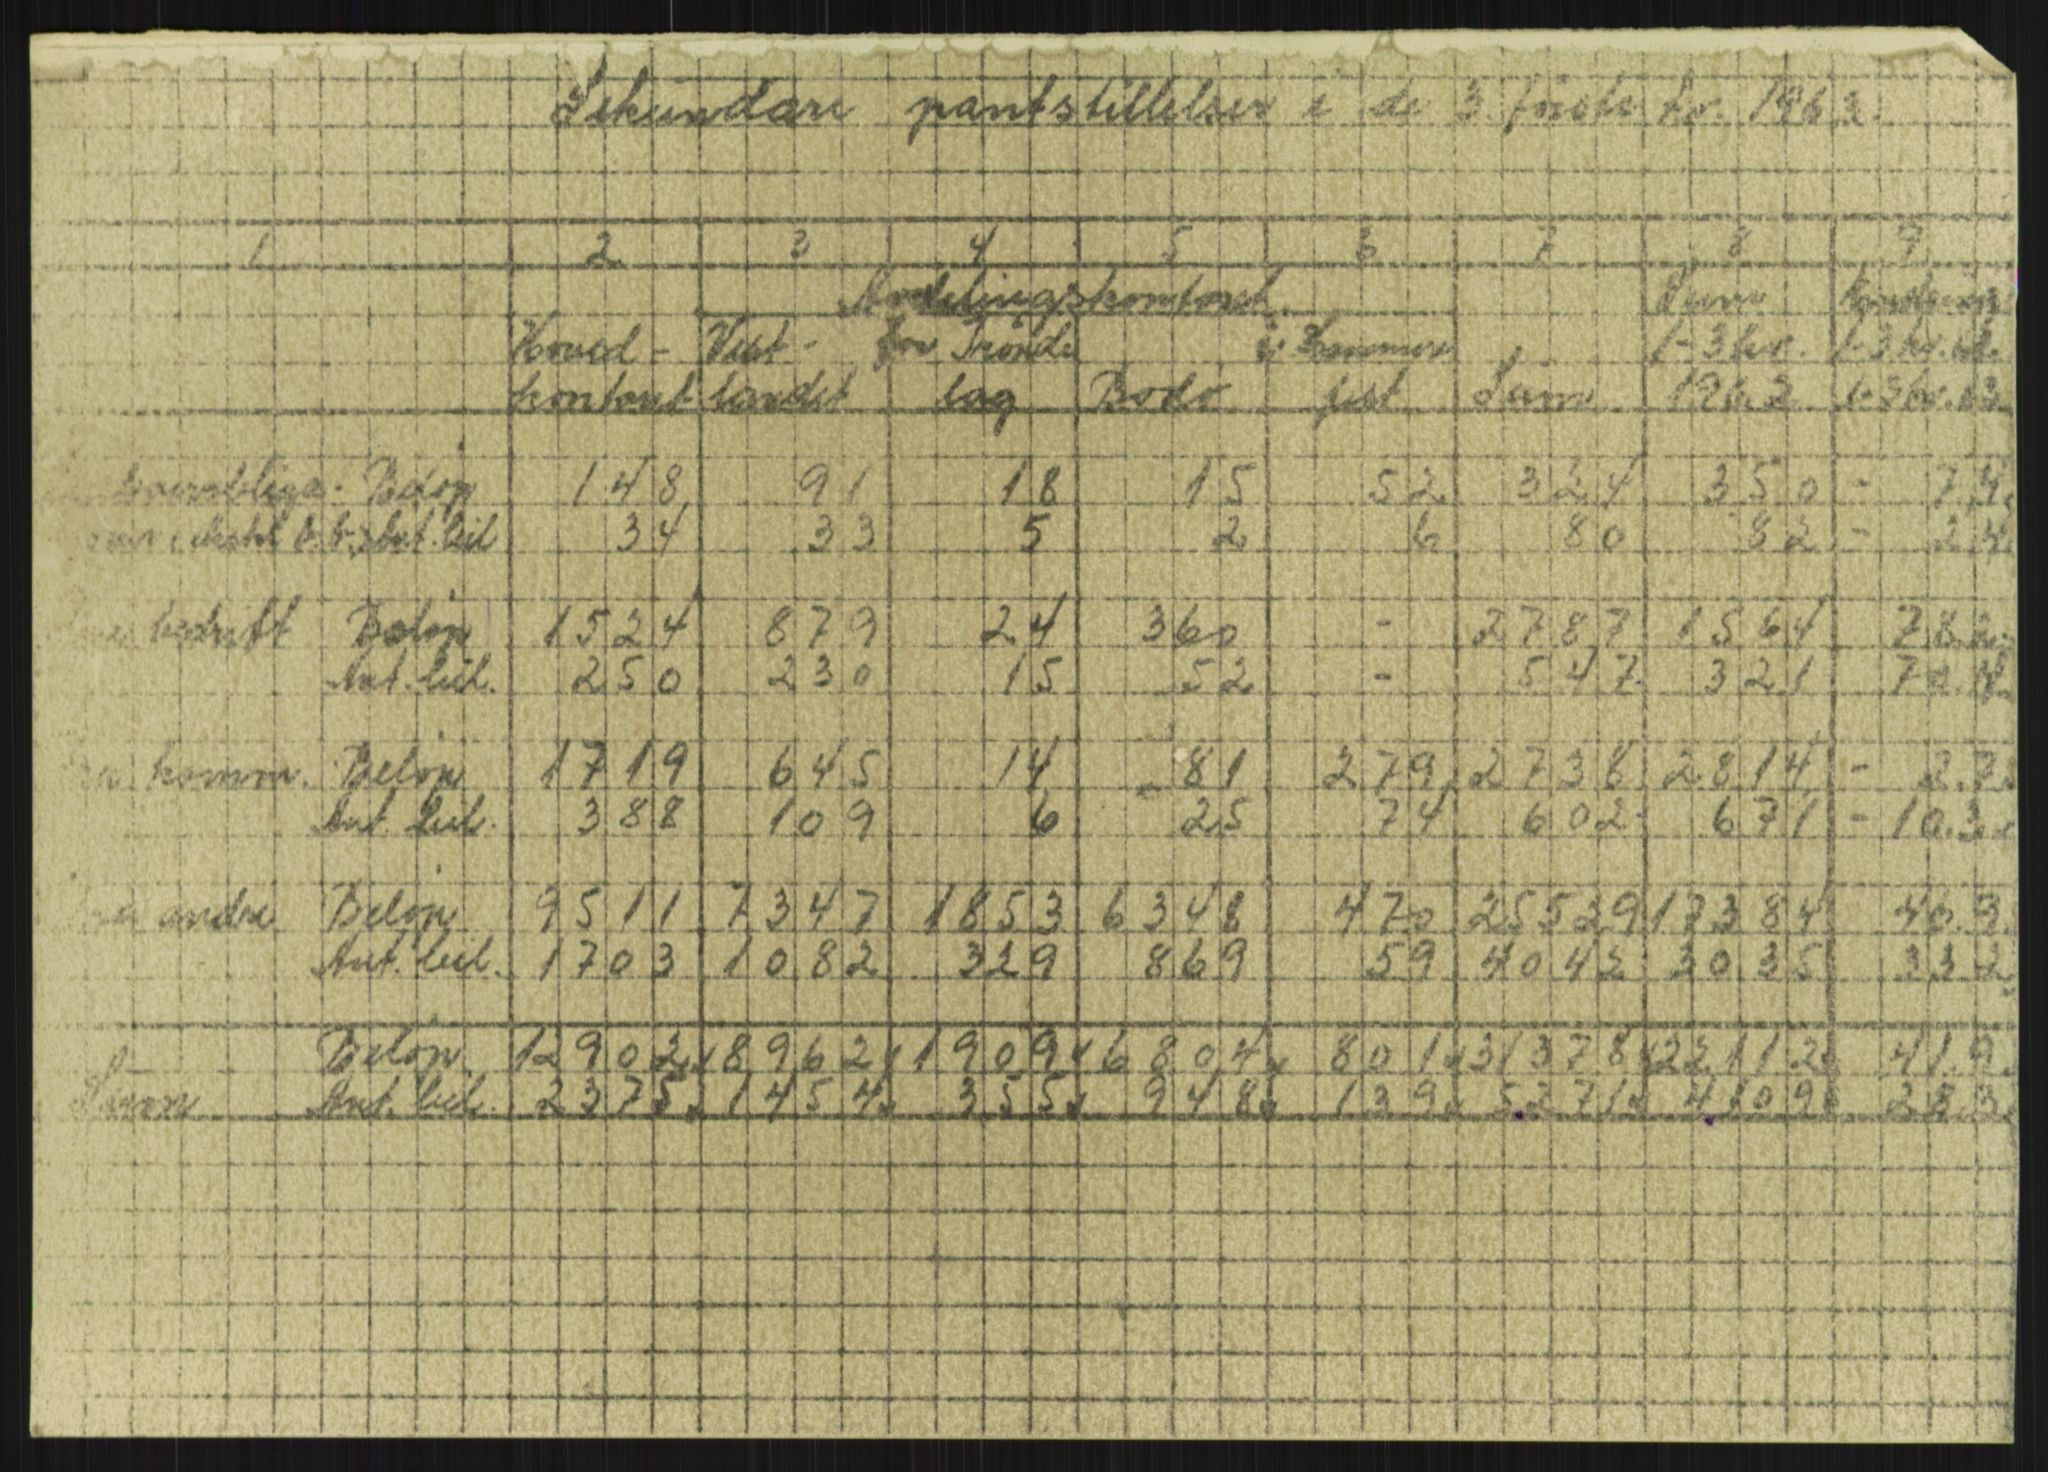 Sekundære pantstillelser i de 3 første kv. 1963.
1 2 3 4 5 6 7 8 9
Avdelingskontoret Sum
Hoved- Vest- for Trønde i Hammer 1-3 kv. 1-3 kv. 62
kontoret landet lag Bodø fest Sum 1962 1-3 kv. 63
Beløp 148 91 18 15 52 324 350 - 7,4
Ant. bid 34 33 5 2 6 80 82 - 2,4
bedrift Beløp 1524 879 24 360 - 2787 1564 78.2
Ant. bid. 250 230 15 52 - 547 321 70.4
komm. Beløp 1719 645 14 81 279 2738 2814 - 2.7
Ant. bid. 388 109 6 25 74 602 671 - 10.3
andre Beløp 9511 7347 1853 6348 470 25529 17384 46.9
Ant. bid. 1703 1082 329 869 59 4042 3035 33 2
Beløp 12902 8962 1909 6804 801 31378 22112 41.9
Sum Ant. bid. 2375 1454 355 948 139 5271 4109 28.3